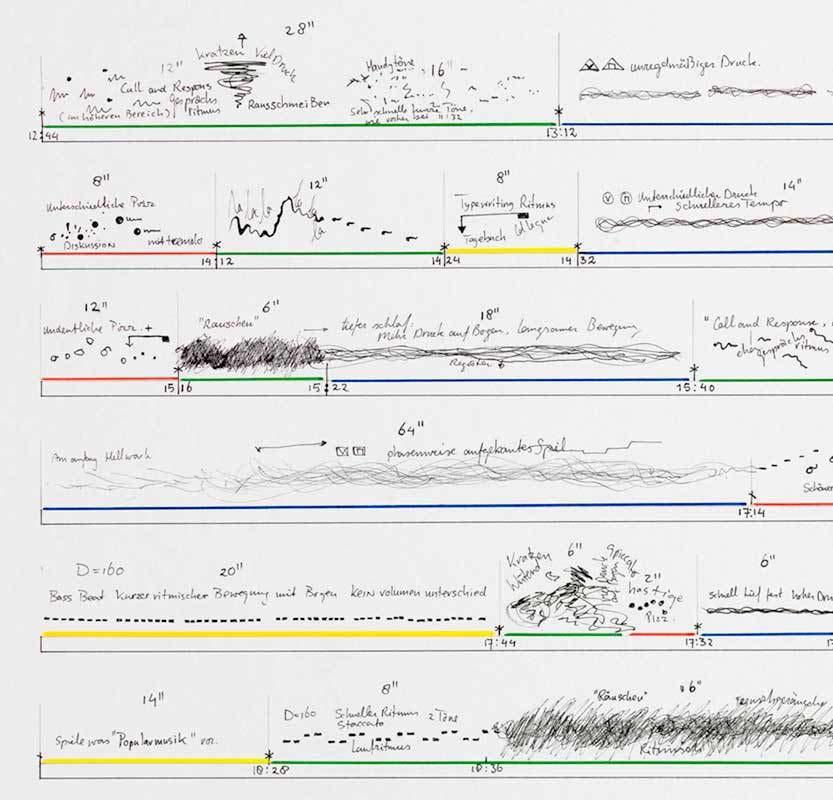 28"
kratzen Viel Druck
12"
Call and Respons
gesprächs
ritmus
(im höheren Bereich)
Rausschmeißen
16"
Sehr schnelle kurze Töne,
wie vorher bei 11:32
unregelmäßiger Druck.
12:44
13:12
8"
Unterschiedliche Pizz.
Diskussion
mit tremolo
12"
la la la
la
8"
Typewriting Ritmus
Tagebuch
v n Unterschiedlicher Druck
schnelleres Tempo
14"
14:12
14:24
14:32
12"
undeutliche Pizz. +
6"
"Rauschen"
18"
tiefer schlaf:
Mehr Druck auf Bogen, langsamer Bewegung
Register
"Call and Response,
gesprächs
ritmus
15:16
15:22
15:40
64"
Am anfang
phasenweise aufgekantes Spiel
17:14
Schöner
D=160
20"
Bass Beat Kurzer ritmischer Bewegung mit Bogen Kein volumen unterschied
Kratzen
Wütend
6"
Spiccato
2"
hastige
Pizz.
6"
schnell tief fest hoher Dru
17:44
17:32
14"
Spiele was "Popularmusik" vor.
8"
D=160 Schneller Ritmus 2 Töne
Staccato
Laufritmus
"Räuschen"
16"
Fernsehgeräusche
18:28
18:36